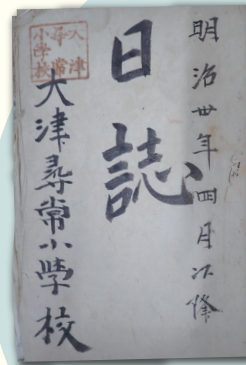 明治卅年四月以降
日誌
大津尋常小學校
大津
尋常
小學校